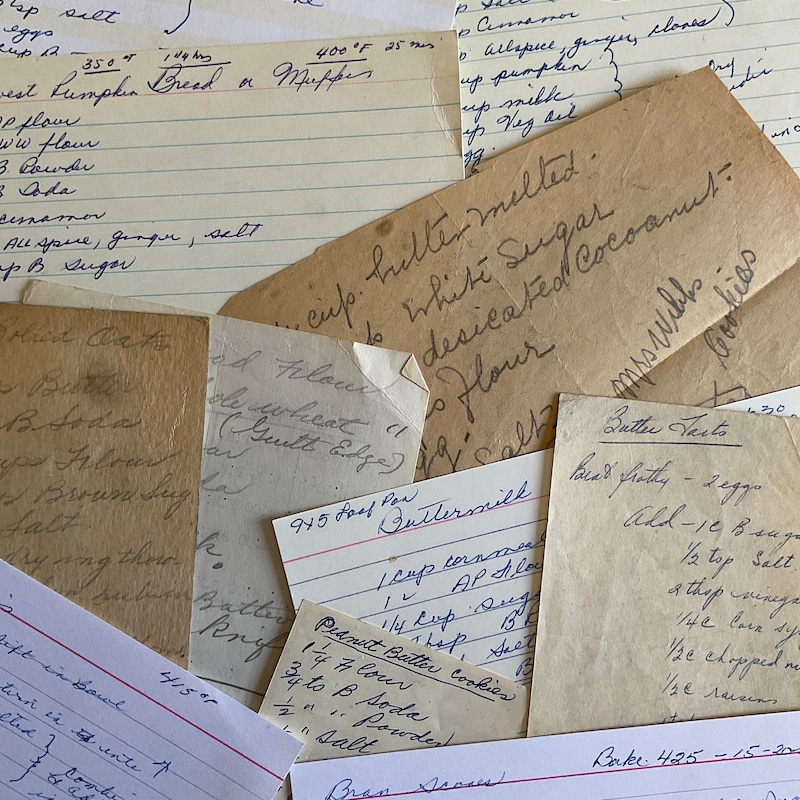 tsp salt
eggs
cup
350°F 1¼ hrs 400°F 25 mins
Pumpkin Bread or Muffins
AP flour
WW flour
B. Powder
B Soda
Cinnamon
Allspice, ginger, salt
B Sugar
cup Cinnamon
Allspice, ginger, cloves
cup pumpkin
cup milk
cup Veg Oil
Dry
cup. butter melted.
white Sugar
desicated Cocoanut.
Flour
Salt
Mrs Webbs
Cookies
Rolled Oats
Butter
B Soda
cups Flour
Brown Sug
Salt
Flour
whole wheat "
(Gutt Edge)
Butter
9x5 Loaf Pan
Buttermilk
1 cup cornmeal
1 " AP Flou
1/4 cup Suga
tbsp B
Salt
B
Butter Tarts
Beat frothy - 2 eggs
Add - 1 C B suga
1/2 tsp Salt
2 tbsp vinega
1/4 C Corn sy
1/2 C chopped n
1/2 C raisins
Peanut Butter Cookies
1 1/4 Flour
3/4 ts B Soda
1/2 " " Powder
Salt
415°F
Sift in Bowl
turn in unto
melted
Bake 425 - 15-20
Bran Scones